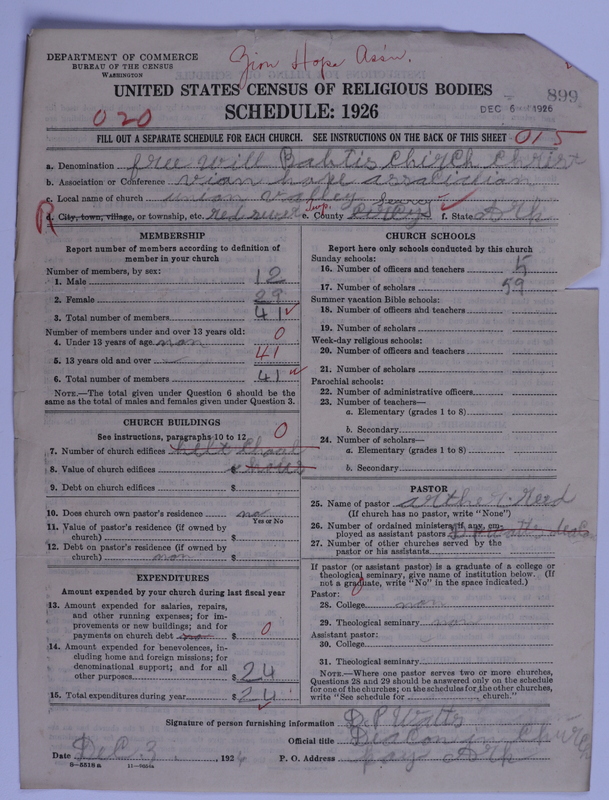 DEPARTMENT OF COMMERCE
BUREAU OF THE CENSUS
WASHINGTON
Zion Hope Ass'n.
UNITED STATES CENSUS OF RELIGIOUS BODIES
899
DEC 6 1926
SCHEDULE: 1926
020
FILL OUT A SEPARATE SCHEDULE FOR EACH CHURCH. SEE INSTRUCTIONS ON THE BACK OF THIS SHEET
015
a. Denomination free will Babtis Chirch Christ
b. Association or Conference vian hope association
c. Local name of church union valley
R d. City, town, village, or township, etc. red river Twp. e. County Searcy f. State Ark
MEMBERSHIP
Report number of members according to definition of
member in your church
Number of members, by sex:
1. Male 12
2. Female 29
3. Total number of members 41
Number of members under and over 13 years old:
4. Under 13 years of age non 0
5. 13 years old and over 41
6. Total number of members 41
NOTE.—The total given under Question 6 should be
same as the total of males and females given under Question 3.
CHURCH BUILDINGS
See instructions, paragraphs 10 to 12
7. Number of church edifices 0
8. Value of church edifices $
9. Debt on church edifices $
10. Does church own pastor's residence no
Yes or No
11. Value of pastor's residence (if owned by
church) $
12. Debt on pastor's residence (if owned by
church) non $
EXPENDITURES
Amount expended by your church during last fiscal year
13. Amount expended for salaries, repairs,
and other running expenses; for im-
provements or new buildings; and for
payments on church debt non $ 0
14. Amount expended for benevolences, in-
cluding home and foreign missions; for
denominational support; and for all
other purposes $ 24
15. Total expenditures during year $ 24
CHURCH SCHOOLS
Report here only schools conducted by this church
Sunday schools:
16. Number of officers and teachers 5
17. Number of scholars 59
Summer vacation Bible schools:
18. Number of officers and teachers
19. Number of scholars
Week-day religious schools:
20. Number of officers and teachers
21. Number of scholars
Parochial schools:
22. Number of administrative officers
23. Number of teachers—
a. Elementary (grades 1 to 8)
b. Secondary
24. Number of scholars—
a. Elementary (grades 1 to 8)
b. Secondary
PASTOR
25. Name of pastor arther Reed
(If church has no pastor, write "None")
26. Number of ordained ministers, if any, em-
ployed as assistant pastors
27. Number of other churches served by the
pastor or his assistants
If pastor (or assistant pastor) is a graduate of a college or
theological seminary, give name of institution below. (If
not a graduate, write "No" in the space indicated.)
Pastor:
28. College non
29. Theological seminary non
Assistant pastor:
30. College
31. Theological seminary
NOTE.—Where one pastor serves two or more churches,
Questions 28 and 29 should be answered only on the schedule
for one of the churches; on the schedules for the other churches,
write "See schedule for church."
Signature of person furnishing information D. P. Watts
Official title Deacon in Church
Date Dec 3, 1926 P. O. Address Ark
8-5518a